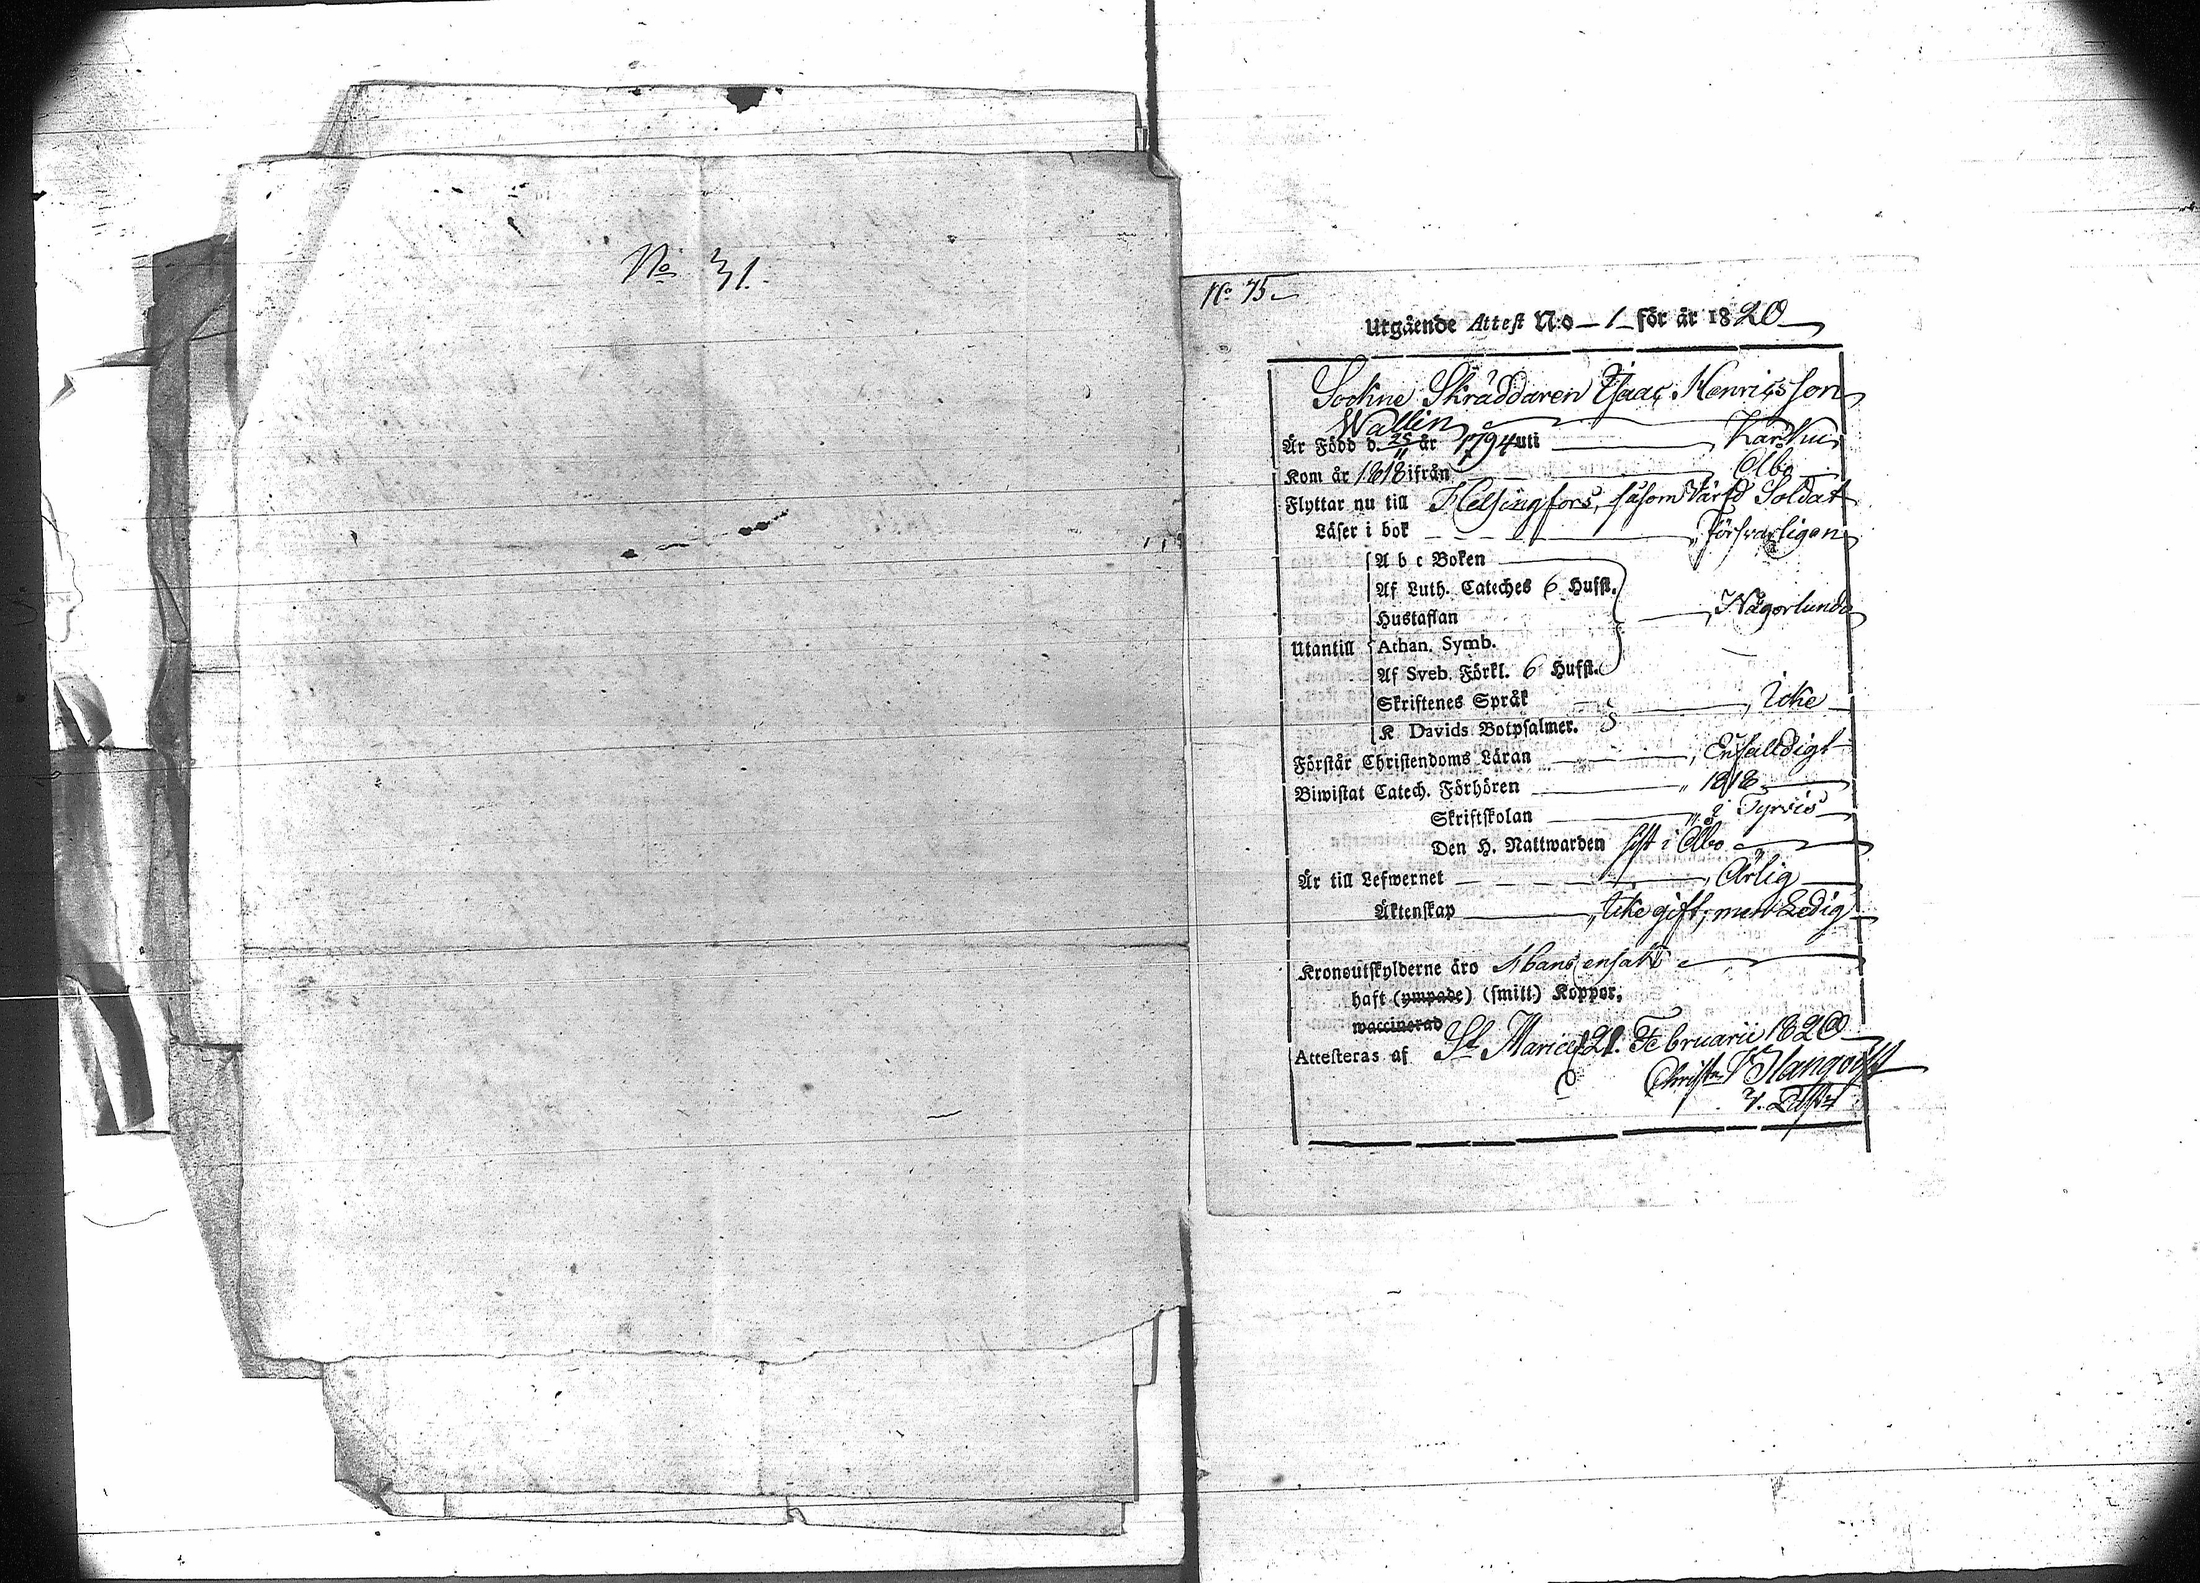 No 31.
No 75
Utgående Attest N:o 1 för år 1820
Sockne Skräddaren Isaac Henricsson
Wallin
Är Född d. 25/11 år 1794 uti Karkku
Kom år 1818 ifrån Åbo
Flyttar nu till Helsingfors, såsom Värfd Soldat
Läser i bok Försvarligen
A b c Boken
Af Luth. Cateches 6 Hufst.
Hustaflan Någorlunda
Utantill Athan. Symb.
Af Sveb. Förkl. 6 Hufst.
Skriftenes Språk Icke
K Davids Botpsalmer.
Förstår Christendoms Läran Enfalldigt
Biwistat Catech. Förhören 1818
Skriftskolan i Tyrvis
Den H. Nattwarden sist i Åbo
Är till Lefwernet Ärlig
Äktenskap Icke gift, men Ledig
Kronoutskylderne äro
haft (ympade) (smitt) Koppor,
waccinerad
Attesteras af St Mariæ d 21. Februarii 1820